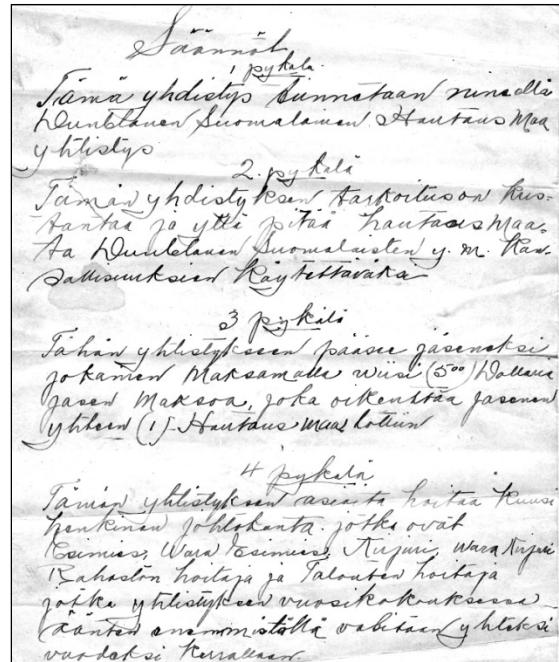 Säännöt
1 pykälä.
Tämä yhdistys tunnetaan nimellä
Suomalainen Hautaus Maa
yhtistys
2. pykälä
Tämän yhdistyksen tarkoitus on kus-
tantaa ja yllä pitää hautausmaa-
ta Suomalaisten y. m. Kan-
sallisuuksien Käytettäväkä
3 pykälä
Tähän yhtistykseen pääsee jäseneksi
jokainen Maksamalla wiisi (5⁰⁰) Dollaria
jäsen Maksoa, joka oikeuttaa jäsenen
yhteen (1) Hautaus maa lottiin
4 pykälä
Tämän yhtistyksen asioita hoitaa Kuusi
henkinen johtokunta jotka ovat
Esimies, Wara Esimies, Kirjuri, Wara Kirjuri
Rahaston hoitaja ja Talouten hoitaja
jotka yhtistyksen vuosikokouksessa
äänten enemmistöllä valitaan yhteksi
vuodeksi Kerrallaan.